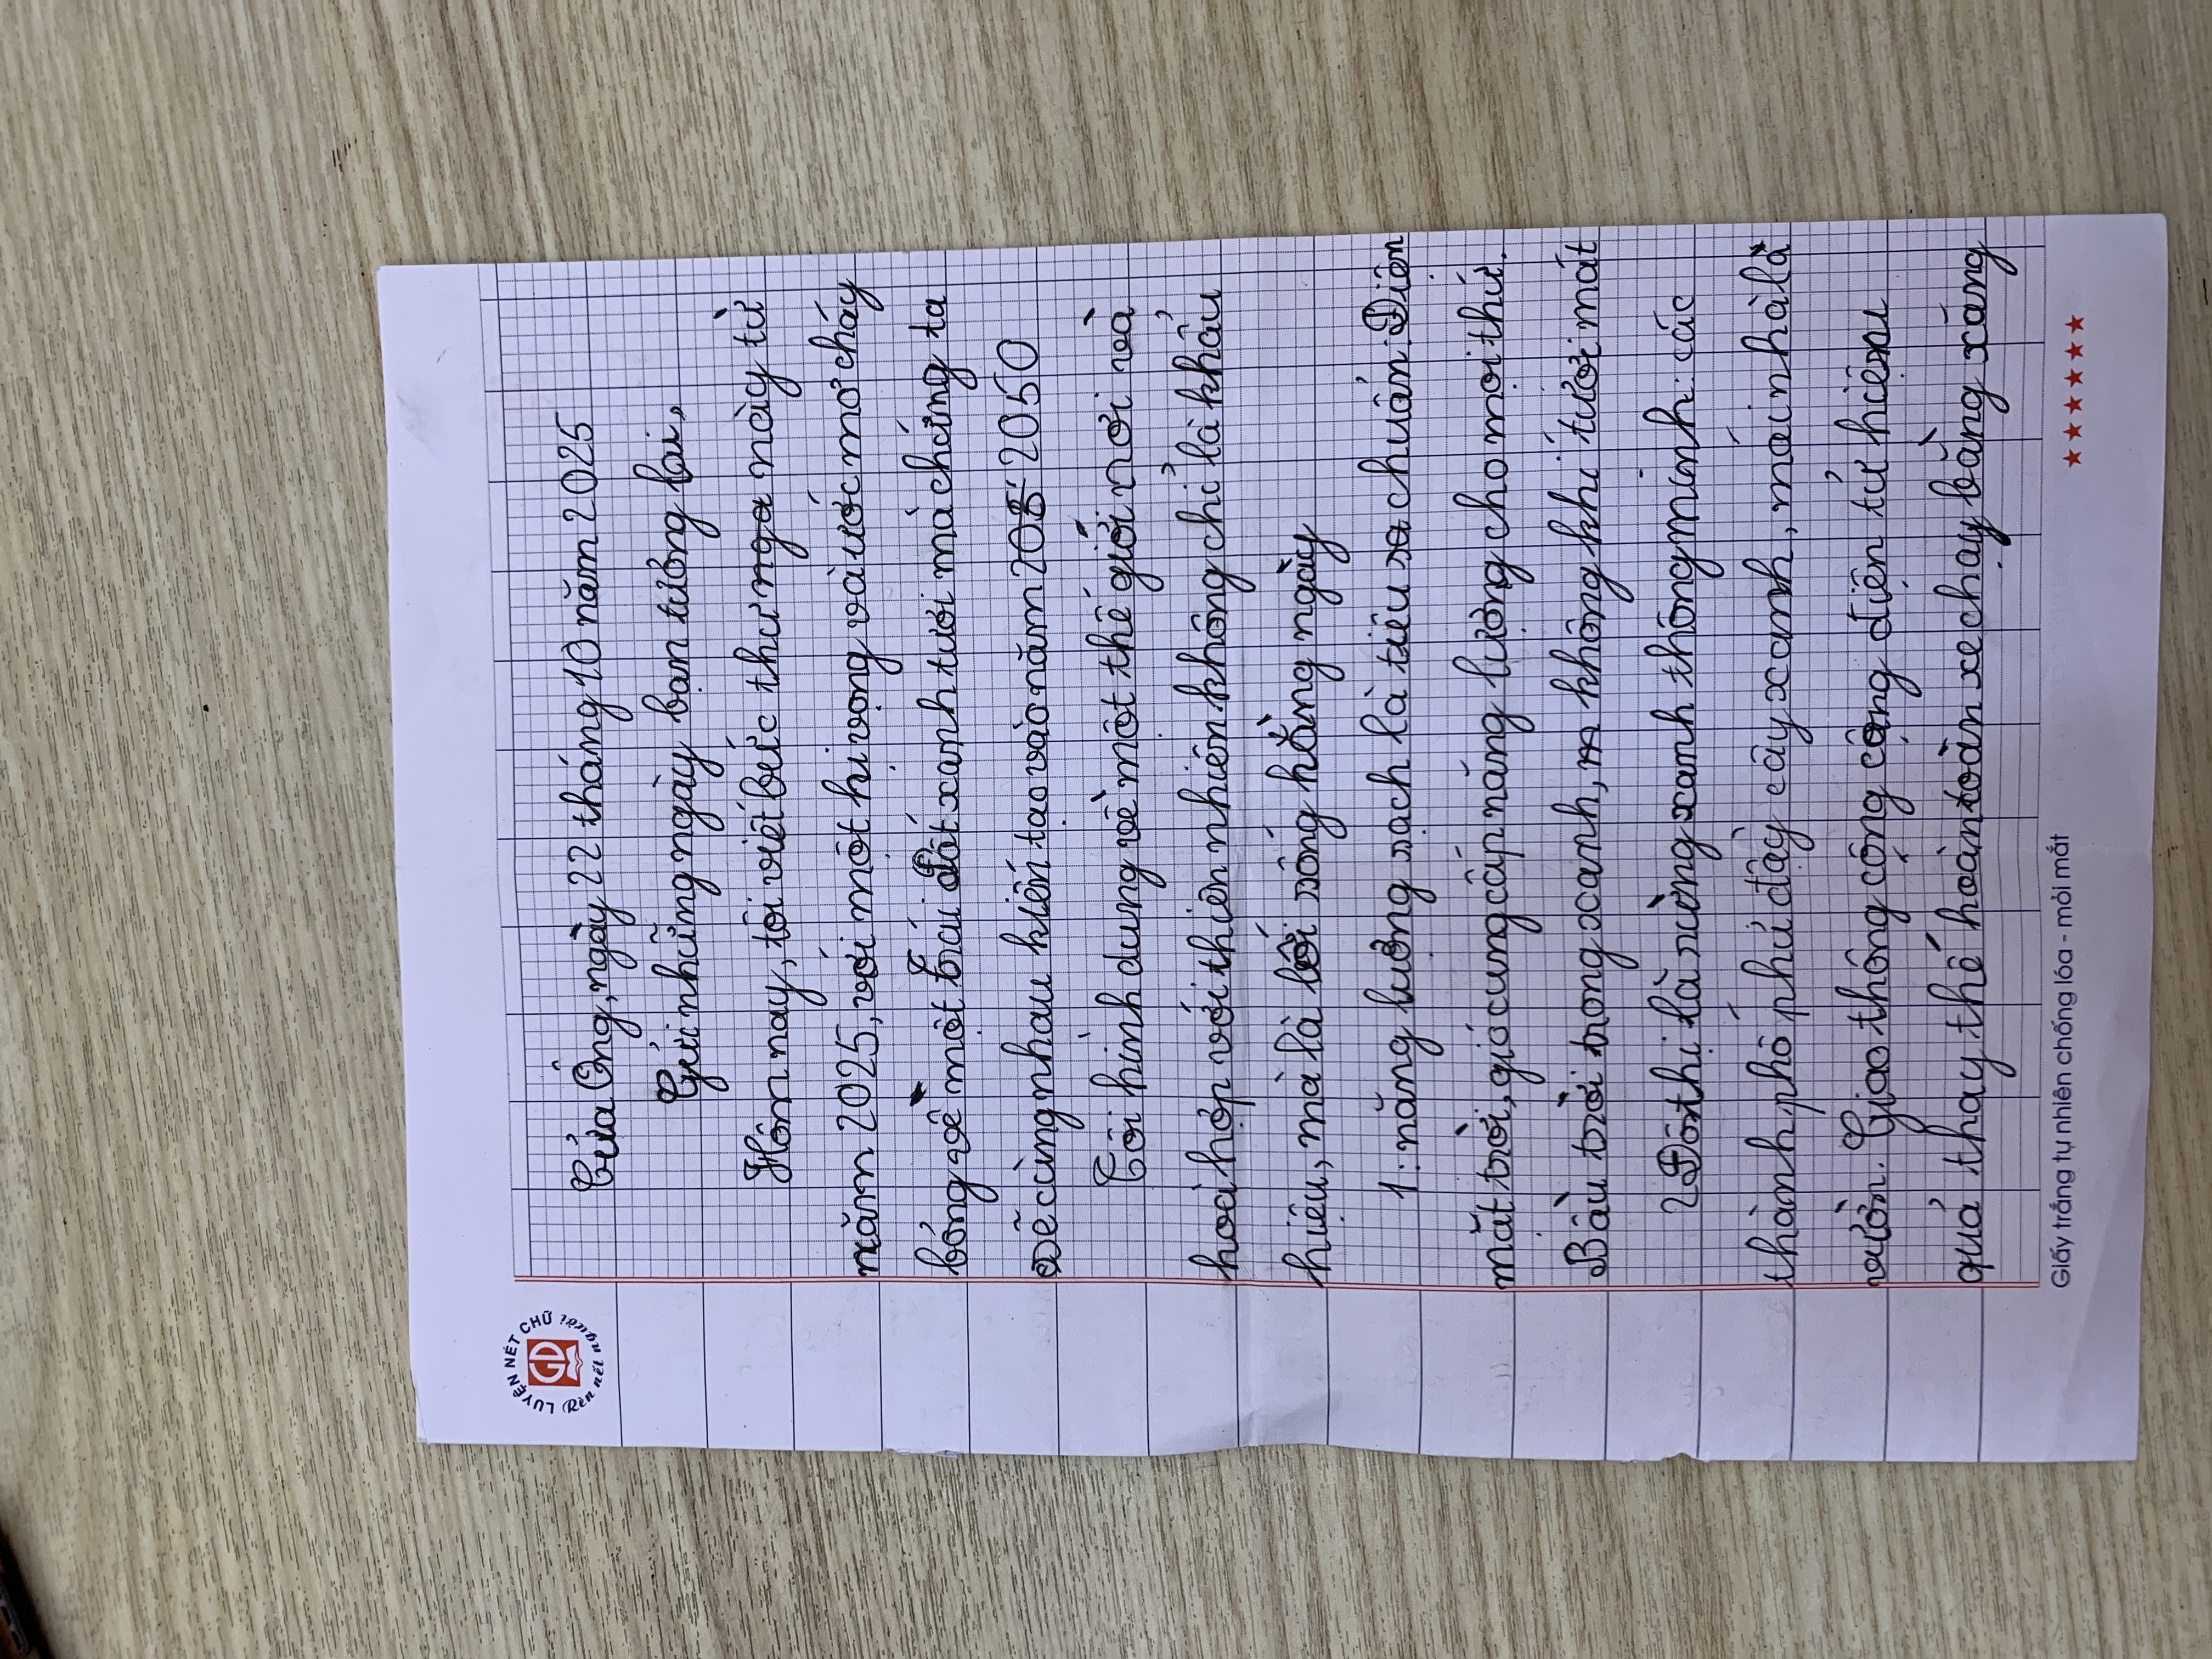 LUYỆN NÉT CHỮ
Rèn nết người
GD
Cửa Ông, ngày 22 tháng 10 năm 2025
Gửi những ngày bạn tương lai,
Hôm nay, tôi viết bức thư nga này từ
năm 2025, với một hi vọng và ước mơ cháy
bỏng về một Trái Đất xanh tươi mà chúng ta
sẽ cùng nhau kiến tạo vào năm 205 2050
Tôi hình dung về một thế giới nơi và
hoà hợp với thiên nhiên không chỉ là khẩu
hiệu, mà là lối sống hằng ngày
1: năng lượng sạch là tiêu sa chuẩn: Điện
mặt trời, gió cung cấp năng lượng cho mọi thứ.
Bầu trời trong xanh, m không khí tươi mát
2 Đôthị là rừng xanh thông minh: các
thành phố phủ đầy cây xanh, mái nhà là
vườn. Giao thông công cộng điện tử hiệu
quả thay thế hoàn toàn xe chạy bằng xăng
Giấy trắng tự nhiên chống lóa - mỏi mắt
★★★★★★